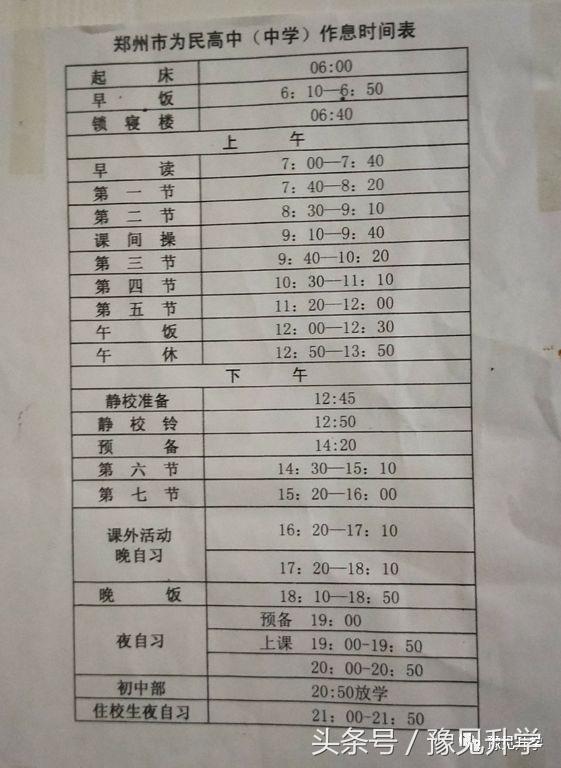 郑州市为民高中（中学）作息时间表
起 床 06:00
早 饭 6：10—6：50
锁 寝 楼 06:40
上 午
早 读 7：00—7：40
第 一 节 7：40—8：20
第 二 节 8：30—9：10
课 间 操 9：10—9：40
第 三 节 9：40—10：20
第 四 节 10：30—11：10
第 五 节 11：20—12：00
午 饭 12：00—12：30
午 休 12：50—13：50
下 午
静校准备 12:45
静 校 铃 12:50
预 备 14:20
第 六 节 14：30—15：10
第 七 节 15：20—16：00
课外活动 16：20—17：10
晚自习 17：20—18：10
晚 饭 18：10—18：50
预备 19：00
夜自习 上课 19：00-19：50
20：00-20：50
初中部 20:50放学
住校生夜自习 21：00-21：50
头条号／豫见升学